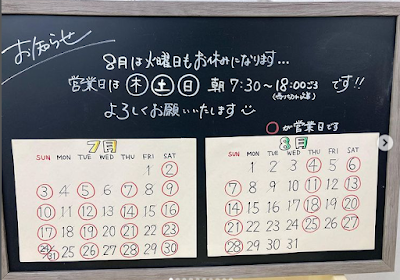 お知らせ
8月は火曜日もお休みになります…
営業日は 木 土 日 朝 7:30〜18:00ごろ です!!
よろしくお願いいたします
○が営業日です
7月
SUN MON TUE WED THU FRI SAT
1 2
3 4 5 6 7 8 9
10 11 12 13 14 15 16
17 18 19 20 21 22 23
24/31 25 26 27 28 29 30
8月
SUN MON TUE WED THU FRI SAT
1 2 3 4 5 6
7 8 9 10 11 12 13
14 15 16 17 18 19 20
21 22 23 24 25 26 27
28 29 30 31